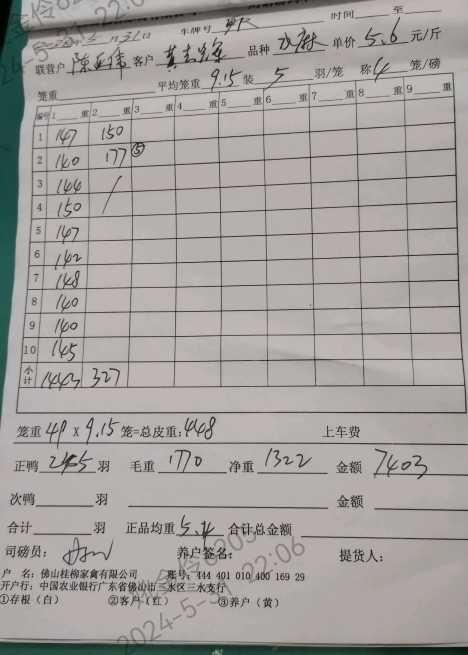 5月31日 车牌号 时间 至
联营户 陈亚伟 客户 品种 水麻 单价 5.6 元/斤
笼重 平均笼重 9.15 装 5 羽/笼 称 4 笼/磅
编号 1 重 2 重 3 重 4 重 5 重 6 重 7 重 8 重 9 重
1 147 150
2 140 177 ⑤
3 144 /
4 150
5 147
6 142
7 148
8 140
9 140
10 145
小计 1443 327
笼重 49 x 9.15 笼=总皮重: 448 上车费
正鸭 245 羽 毛重 1770 净重 1322 金额 7403
次鸭 羽 金额
合计 羽 正品均重 5.4 合计总金额
司磅员: 养户签名: 提货人:
户 名: 佛山桂柳家禽有限公司 账号: 444 401 010 400 169 29
开户行: 中国农业银行广东省佛山市三水区三水支行
①存根(白) ②客户(红) ③养户(黄)
2024-5-31 22:06